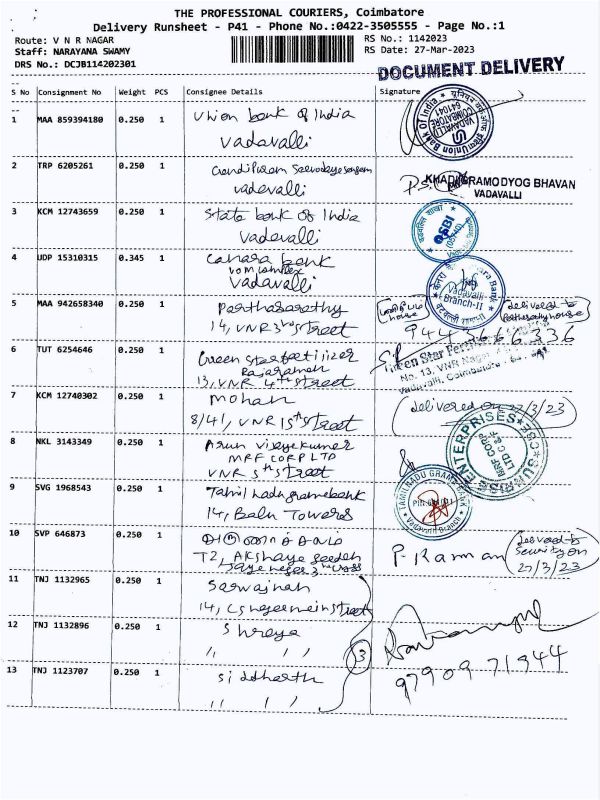 THE PROFESSIONAL COURIERS, Coimbatore
Delivery Runsheet - P41 - Phone No.:0422-3505555 - Page No.:1
Route: V N R NAGAR
RS No.: 1142023
Staff: NARAYANA SWAMY
RS Date: 27-Mar-2023
DRS No.: DCJB114202301
DOCUMENT DELIVERY
S No Consignment No Weight PCS Consignee Details Signature
1 MAA 859394180 0.250 1 Union bank of India
Vadavalli
2 TRP 6205261 0.250 1
vadavalli
KHADI GRAMODYOG BHAVAN
VADAVALLI
3 KCM 12743659 0.250 1 State bank of India
Vadavalli
SBI
4 UDP 15310315 0.345 1 Canara bank
Vadavalli
Vadavalli
Branch-II
5 MAA 942658340 0.250 1 Parthasarathy
14, VNR 3rd street
house delivered to
Parthasarathy house
9443666336
6 TUT 6254646 0.250 1 Green Star fertilizer
Rajaraman
13, VNR 4th street
Green Star
No. 13, VNR Nagar
Vadavalli, Coimbatore - 641 041
7 KCM 12740302 0.250 1 Mohan
8/41, VNR 15th street
delivered on 27/3/23
8 NKL 3143349 0.250 1 Arun vijayakumar
MRF CORP LTD
VNR 5th street
SUNRISE ENTERPRISES
MRF CORP
LTD C & F
9 SVG 1968543 0.250 1 Tamil nadu grama bank
14, Balu Towers
TAMIL NADU GRAMA BANK
Vadavalli Branch
10 SVP 646873 0.250 1
T2, Akshaya
P Ramman delivered to
security on
27/3/23
11 TNJ 1132965 0.250 1 Sarwajnah
14,
12 TNJ 1132896 0.250 1 Shreya
,, ,,
3
9790971944
13 TNJ 1123707 0.250 1 Siddharth
,, ,,